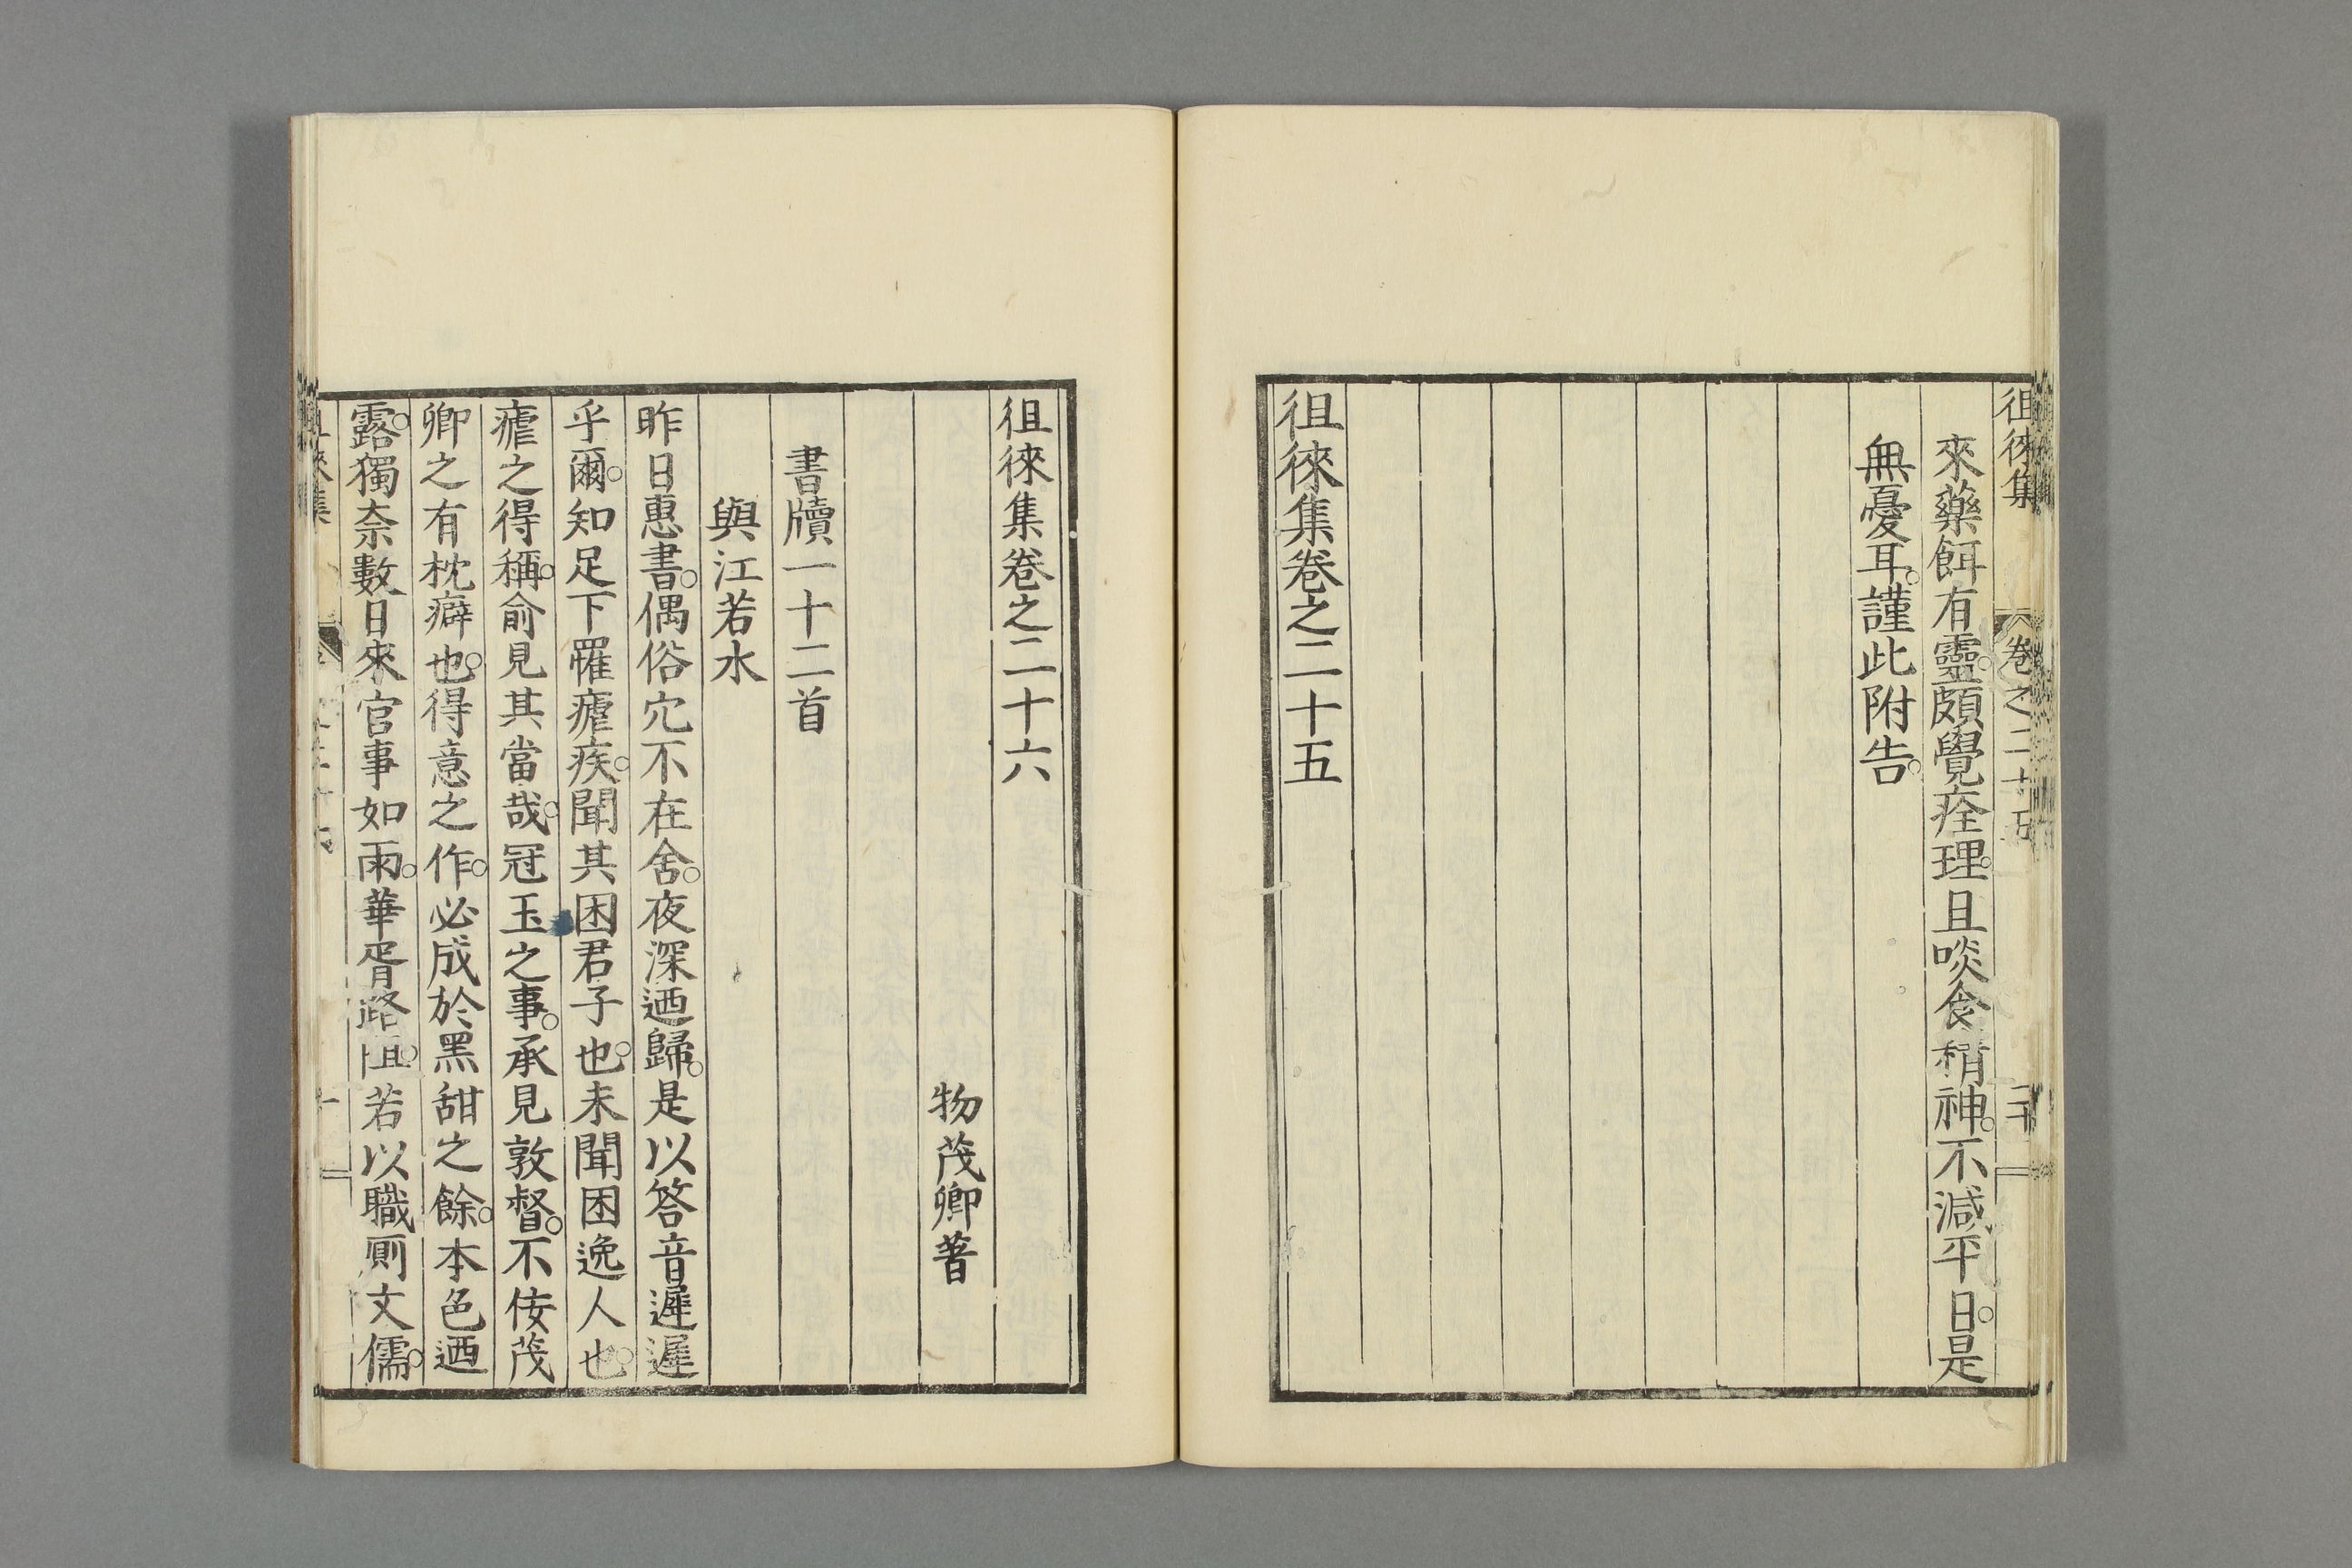 徂徠集 卷之二十五 二十
來藥餌有靈。頗覺痊理。且啖食精神。不減平日。是
無憂耳。謹此附告。
徂徠集卷之二十五
徂徠集卷之二十六
物茂卿著
書牘一十二首
與江若水
昨日惠書。偶俗冗不在舍。夜深迺歸。是以答音遲遲
乎爾。知足下罹瘧疾。聞其困君子也。未聞困逸人也。
瘧之得稱。俞見其當哉。冠玉之事。承見敦督。不佞茂
卿之有枕癖也。得意之作。必成於黑甜之餘。本色迺
露。獨奈數日來官事如雨。華胥路阻。若以職廁文儒。
徂徠集